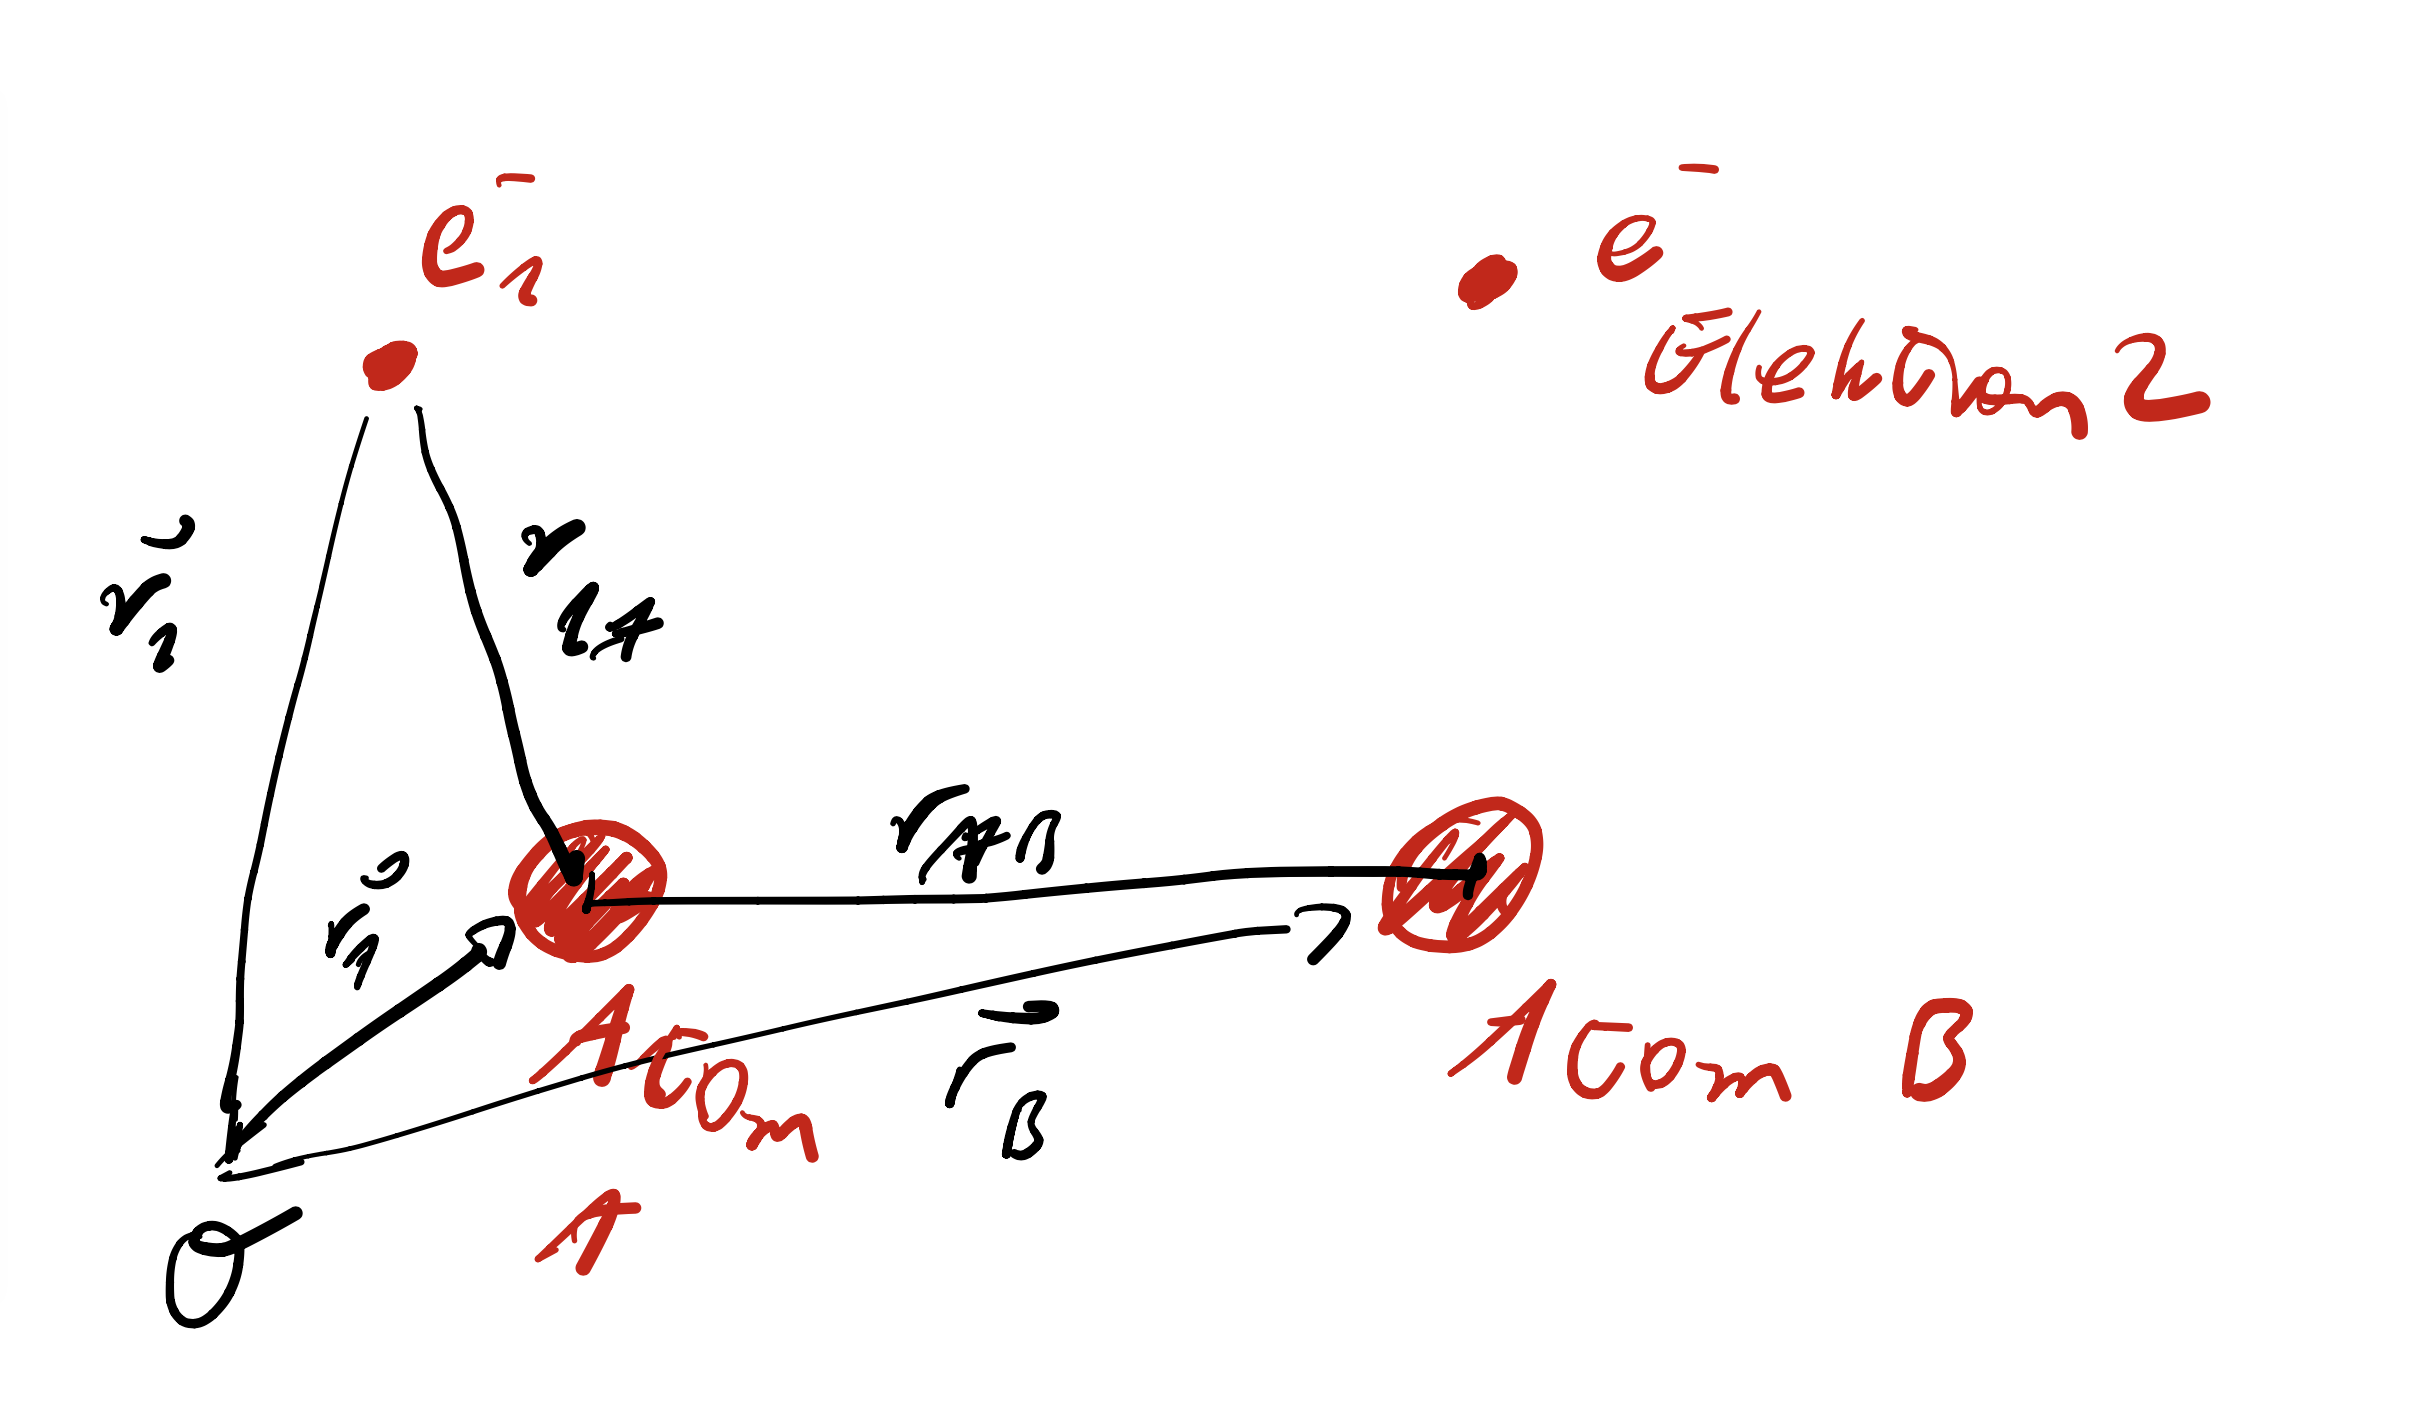 e₁⁻
e⁻
Elektron 2
r⃗₁
r₁A
rAB
r⃗A
r⃗B
Atom
A
Atom B
O